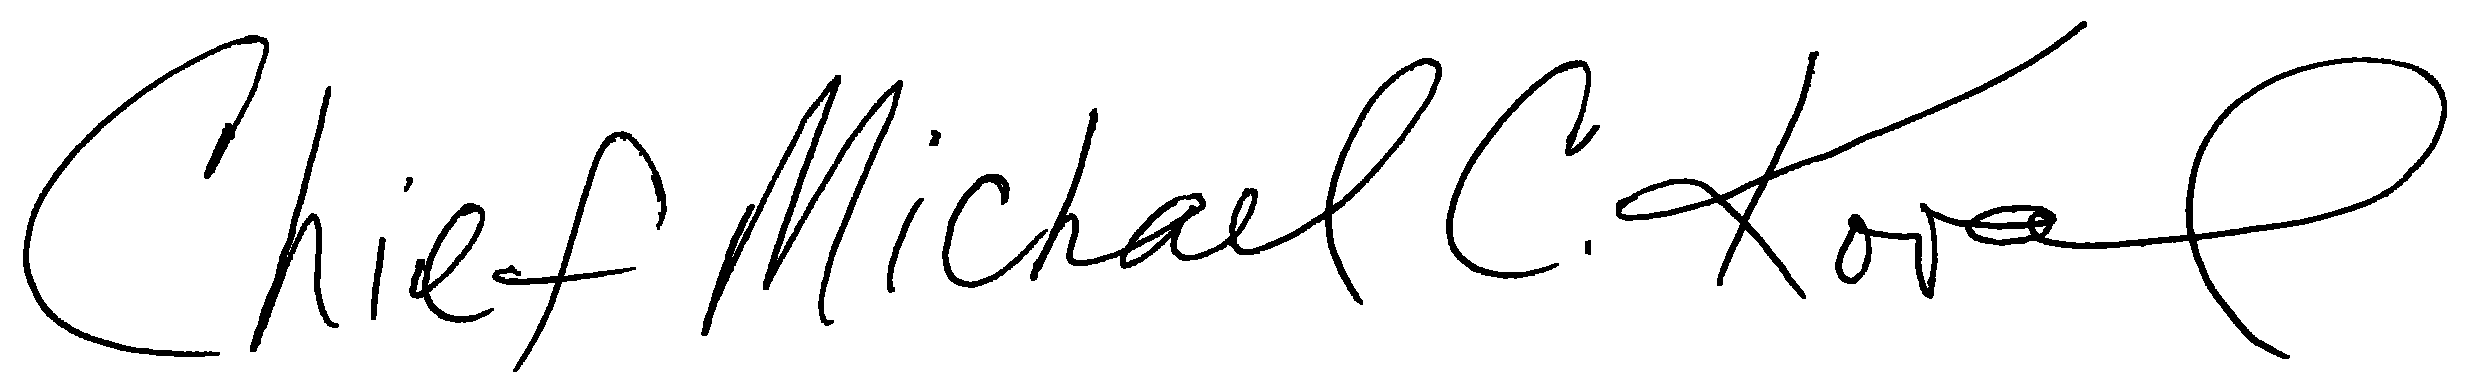 Chief Michael C. Koval